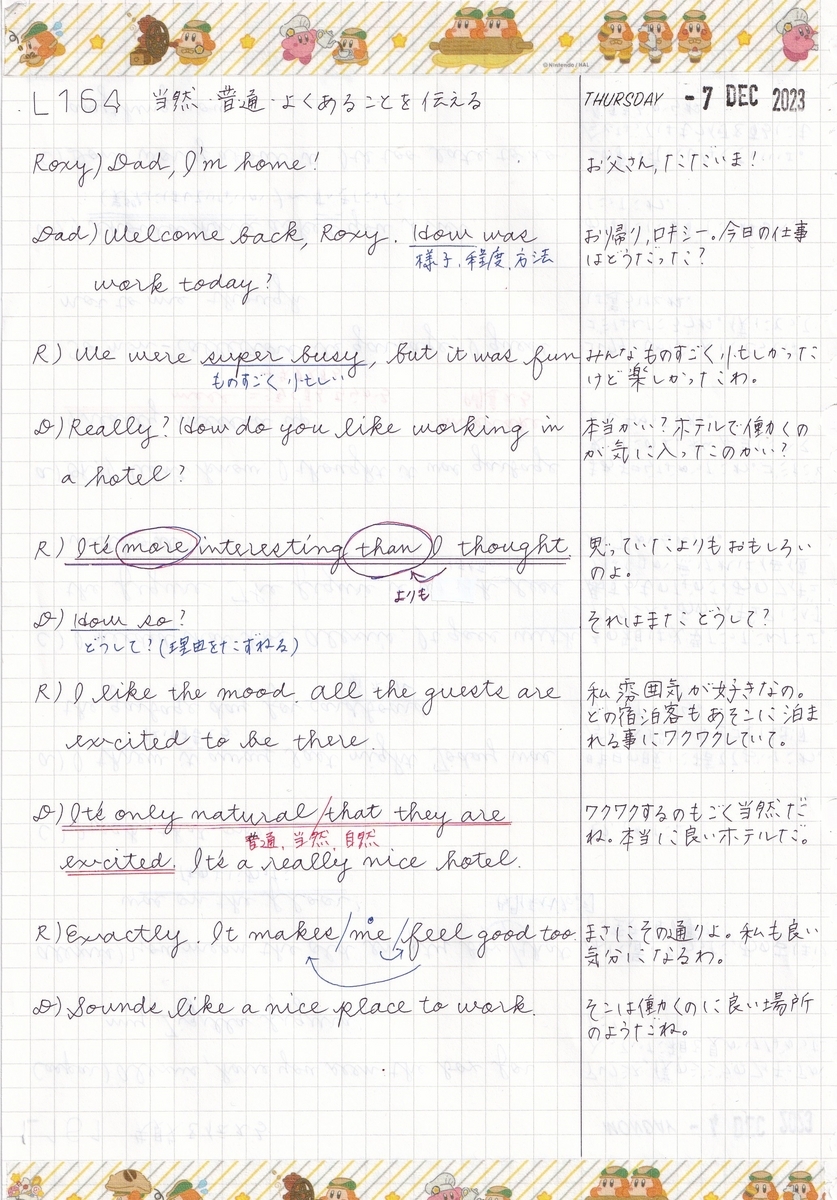 © Nintendo / HAL
L164 当然・普通・よくあることを伝える
THURSDAY -7 DEC 2023
Roxy) Dad, I'm home!
お父さん,ただいま!
Dad) Welcome back, Roxy. How was
様子,程度,方法
work today?
お帰り,ロキシー。今日の仕事
はどうだった?
R) We were super busy, but it was fun
ものすごく忙しい
みんなものすごく忙しかった
けど楽しかったわ。
D) Really? How do you like working in
a hotel?
本当かい?ホテルで働くの
が気に入ったのかい?
R) It's more interesting than I thought.
よりも
思っていたよりもおもしろい
のよ。
D) How so?
どうして?(理由をたずねる)
それはまたどうして?
R) I like the mood. All the guests are
excited to be there.
私雰囲気が好きなの。
どの宿泊客もあそこに泊ま
れる事にワクワクしていて。
D) It's only natural/that they are
普通,当然,自然
excited. It's a really nice hotel.
ワクワクするのもごく当然だ
ね。本当に良いホテルだ。
R) Exactly. It makes/me/feel good too.
まさにその通りよ。私も良い
気分になるわ。
D) Sounds like a nice place to work.
そこは働くのに良い場所
のようだね。